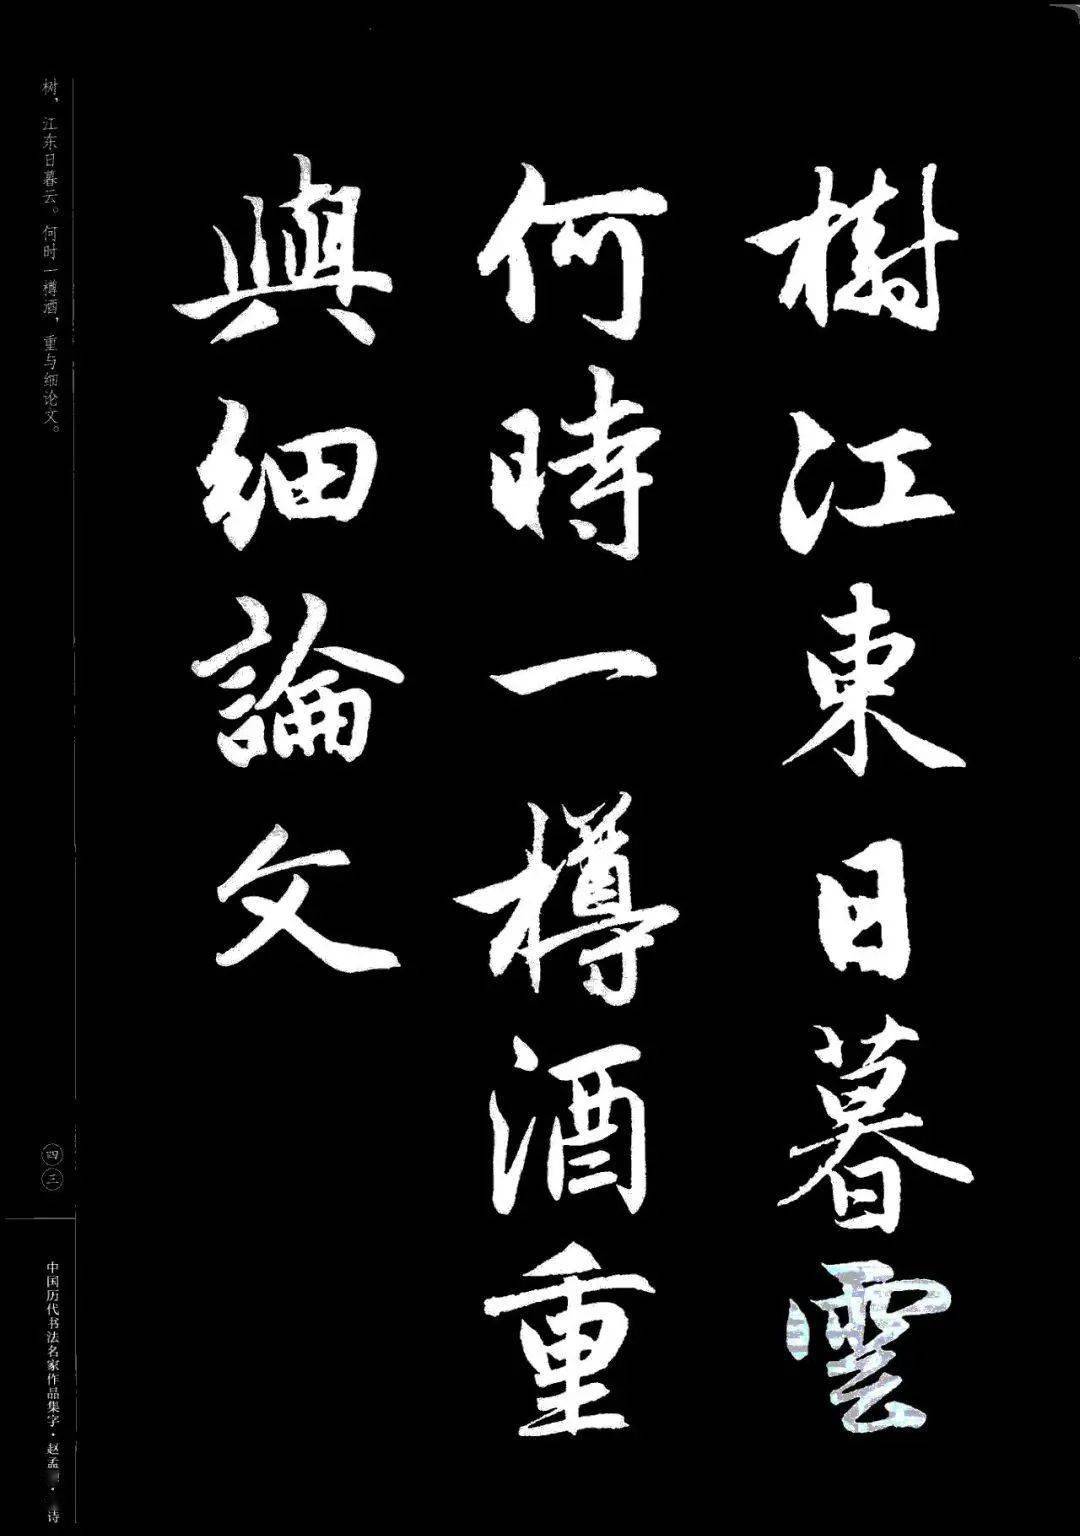 樹江東日暮雲
何時一樽酒重
與細論文
树，江东日暮云。何时一樽酒，重与细论文。
四三
中国历代书法名家作品集字·赵孟 · 诗